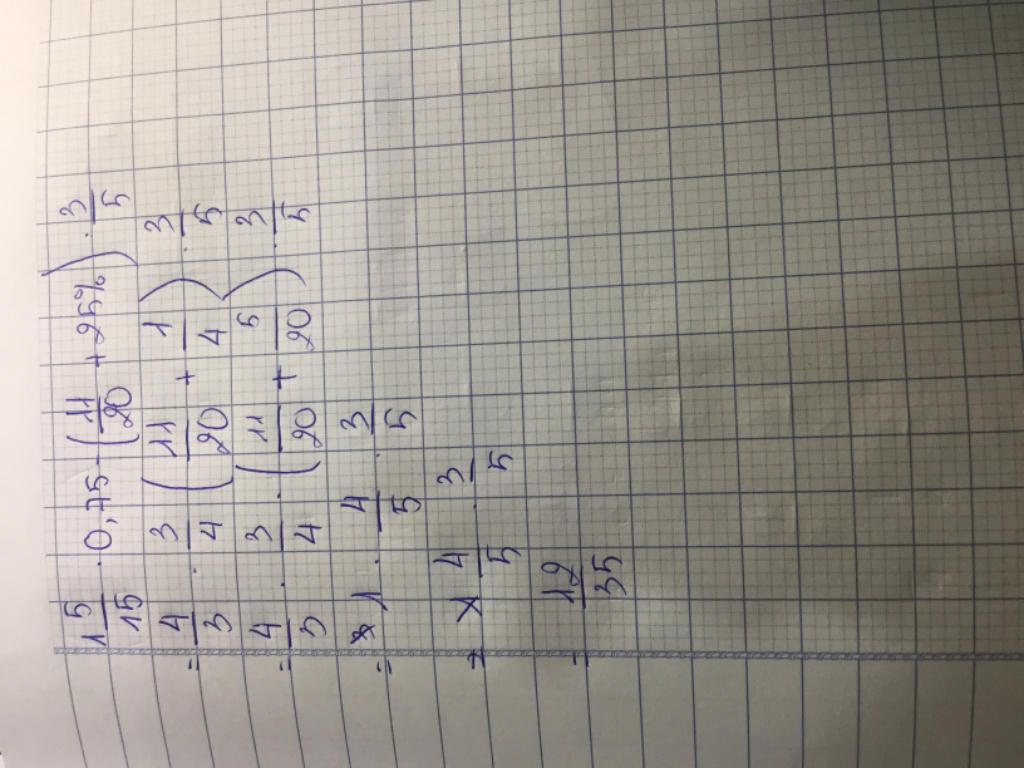 1 5/15 . 0,75 - (11/20 + 25%) . 3/5
= 4/3 . 3/4 (11/20 + 1/4) . 3/5
= 4/3 . 3/4 . (11/20 + 5/20) . 3/5
= 1 . 4/5 . 3/5
= 1 4/5 . 3/5
= 12/35